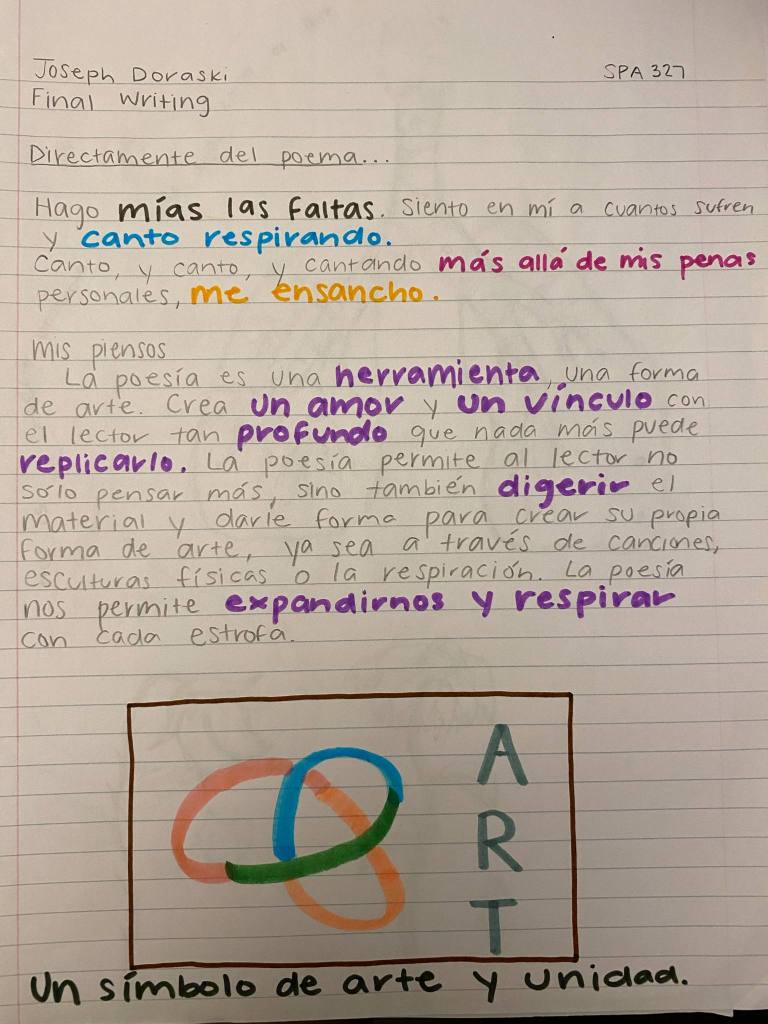 Joseph Doraski
SPA 327
Final Writing
Directamente del poema...
Hago mías las faltas. Siento en mí a cuantos sufren
y canto respirando.
Canto, y canto, y cantando más allá de mis penas
personales, me ensancho.
Mis piensos
La poesía es una herramienta, una forma
de arte. Crea un amor y un vínculo con
el lector tan profundo que nada más puede
replicarlo. La poesía permite al lector no
sólo pensar más, sino también digerir el
material y darle forma para crear su propia
forma de arte, ya sea a través de canciones,
esculturas físicas o la respiración. La poesía
nos permite expandirnos y respirar
con cada estrofa.
A
R
T
Un símbolo de arte y unidad.